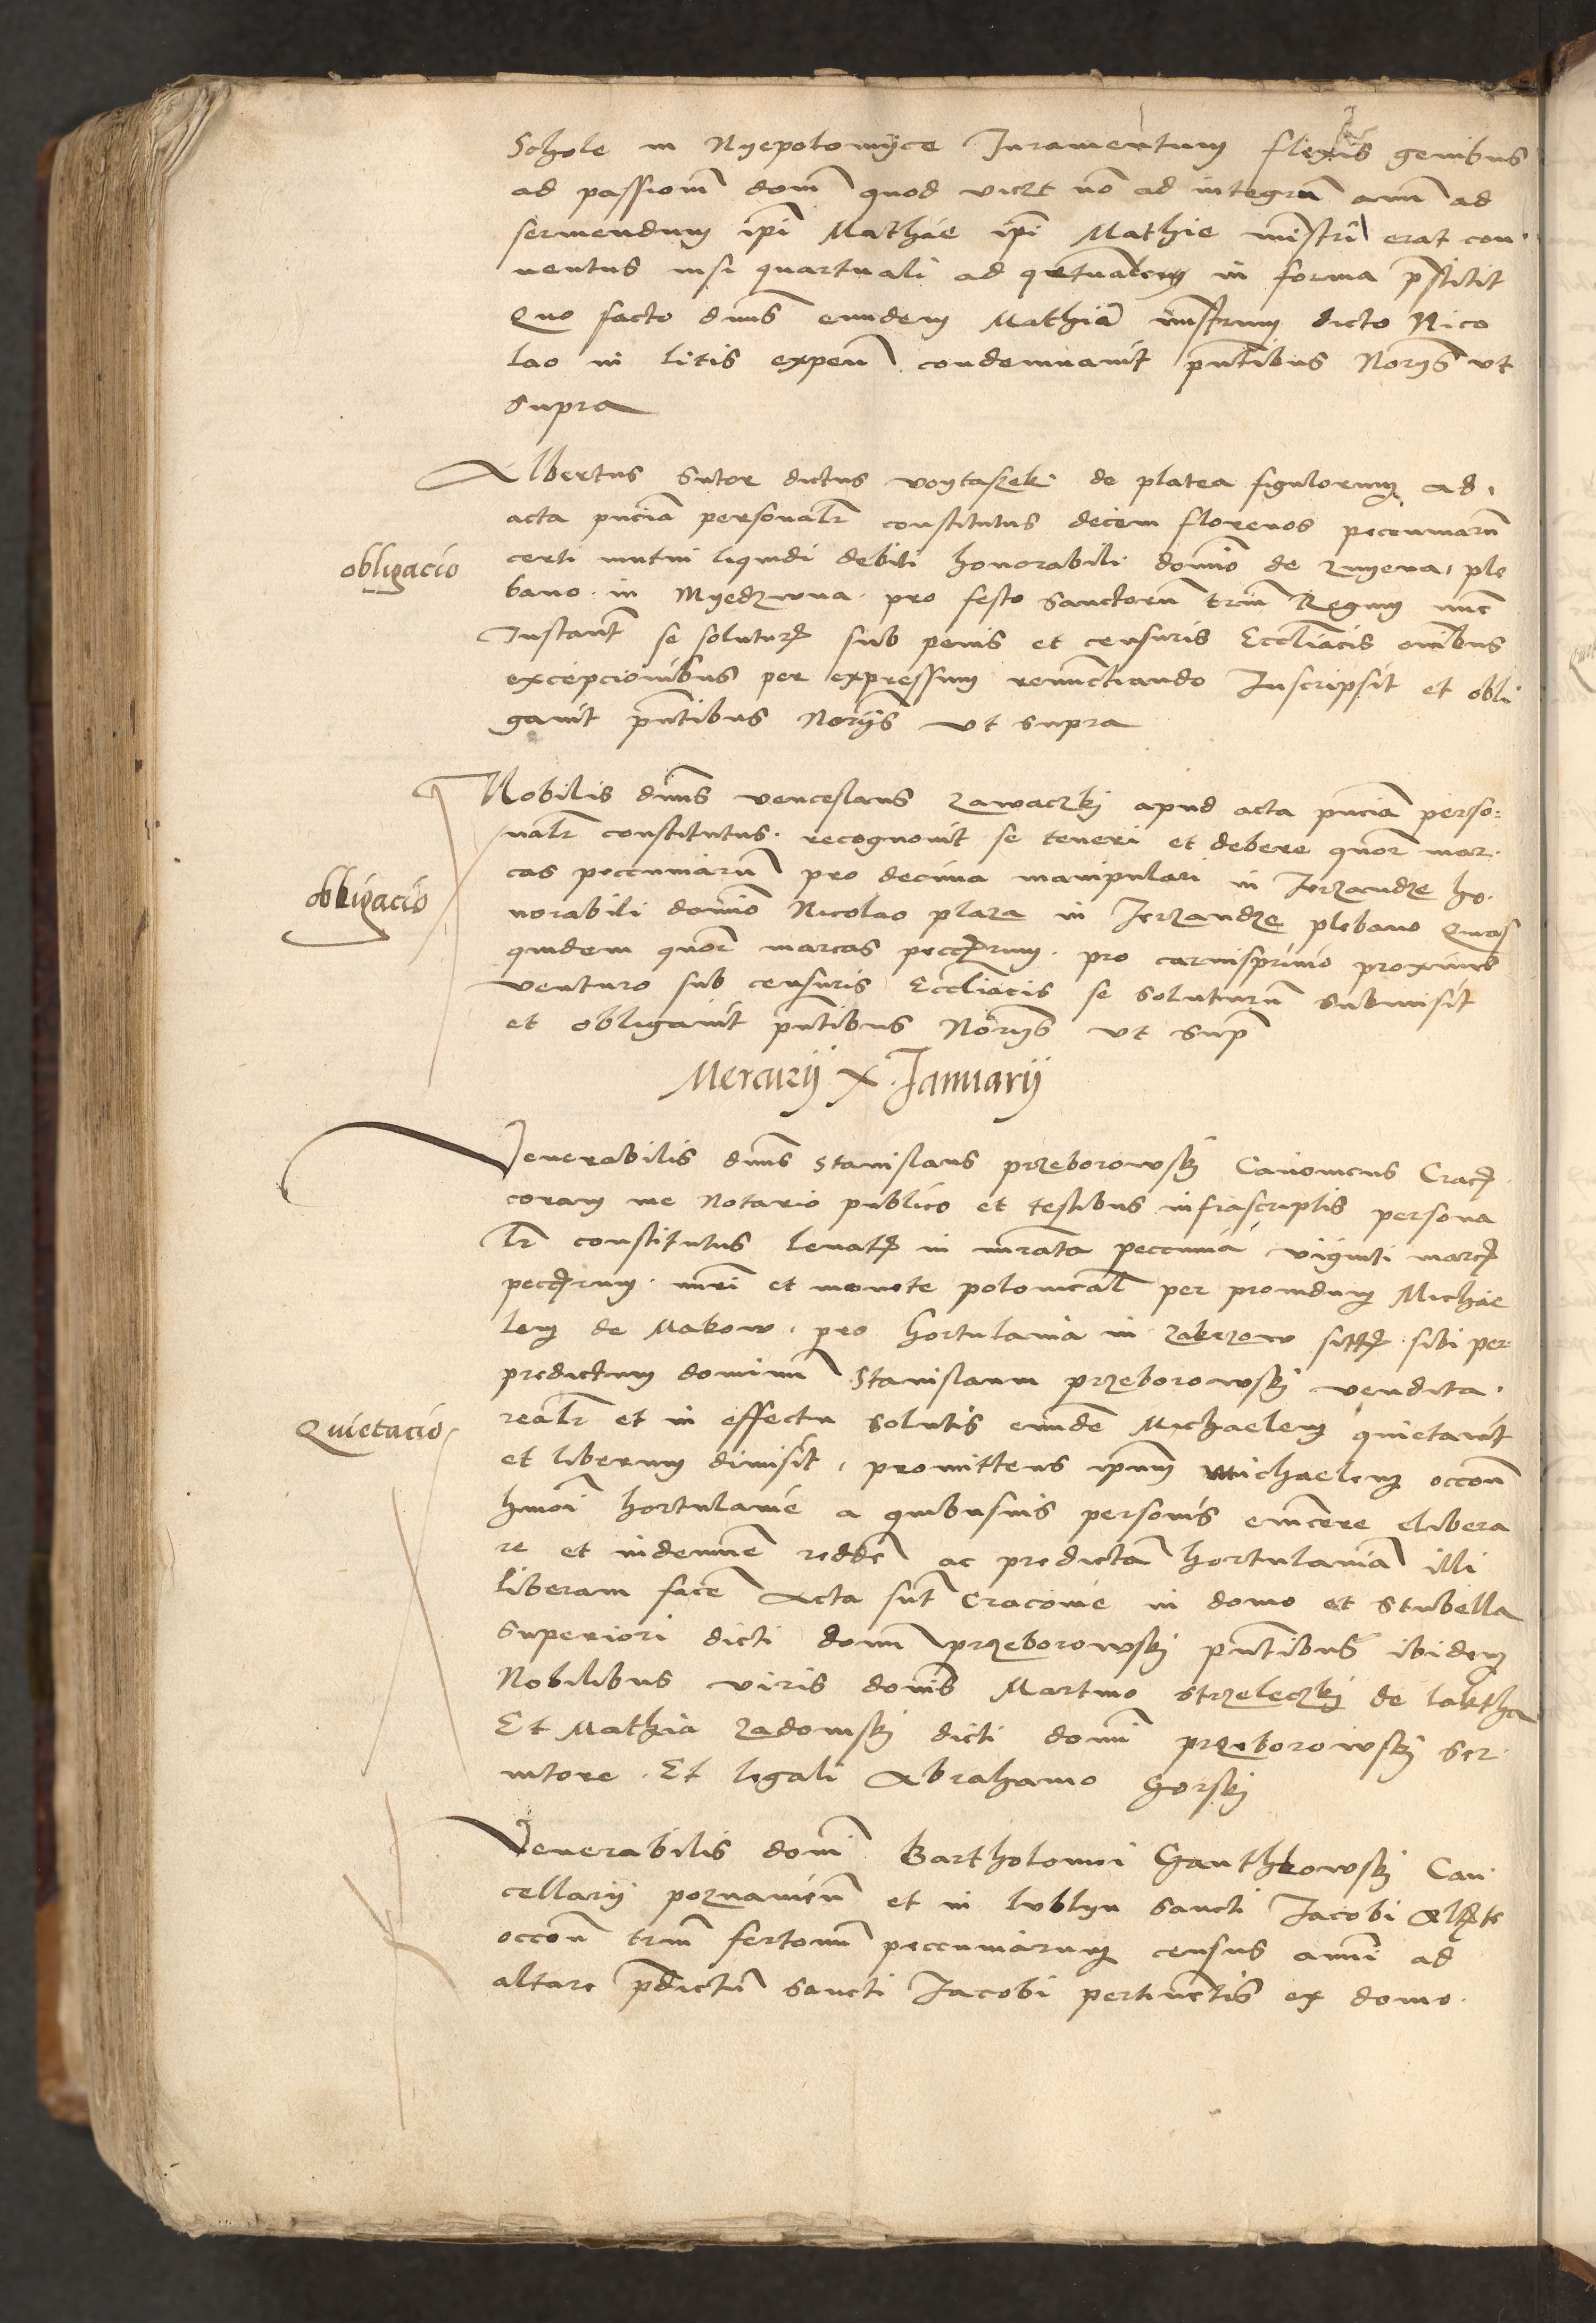 Schole in Nyepolomyce Juramentum flexis genibus
ad passionem dom quod vicit no ad integrum annu ad
serviendum ipi Mathie ipi Mathie ministri erat con
ventus nisi quartuali ad quartualem in forma prestitit
Quo facto dnus eundem Mathia ministrum dicto Nico
lao in litis expen condemnavit pntibus Noriis ut
supra
Albertus sutor dictus voytaszek de platea figulorum ad
acta pncia personalr constitutus decem florenos pecuniaru
obligacio
certi mutui liquidi debiti honorabili domino de znyena ple
bano in Myedzwna pro festo sanctoru triu Regum nuc
Instant se soluturum sub penis et censuris Eccliacis omibus
excepcionibus per expressum renunctiando Inscripsit et obli
gavit pntibus Noriis ut supra
Nobilis dnus venceslaus zawaczkj apud acta pncia perso
nalr constitutus recognovit se teneri et debere quor mar
cas pecuniaru pro decima manipulari in Jerzandze ho
obligacio
norabili domino Nicolao plaza in Jerzandze plebano Quas
quidem quor marcas peccrum pro carnisprivio proximo
venturo sub censuris Eccliacis se soluturu submisit
et obligavit pntibus Noriis ut sup
Mercurij x Januarij
Venerabilis dnus Stanislaus przeborowskj Canonicus Crac
coram me Notario publico et testibus infrascriptis persona
lr constitutus levatis in nurata peccunia viginti marcis
peccrum nuri et monete polonical per providum Michae
lem de Makow pro hortulania in zakrzow sitta sibi per
predictum dominu Stanislaum przeborowskj vendita
Quietacio
realr et in effectu solutis eunde Michaelem quietavit
et liberum dimisit promittens ipsum Michaelem occone
hmoi hortulanie a quibusvis personis evincere elibera
re et indemne redde ac predicta hortulania illi
liberam face Acta sut Cracovie in domo et stubella
superiori dicti domi przeborowskj pntibus ibidem
Nobilibus viris domis Martino strzeleczkj de laktha
Et Mathia zadomskj dicti domi przeborowskj ser
vitore Et legali Abrahamo Gorskj
Venerabilis domi Bartholomei Ganthkowskj Can
cellarij poznanien et in lublyn sancti Jacobi Altste
occone triu fertonu pecuniarum census anni ad
altare pdictu sancti Jacobi pertinetis ex domo